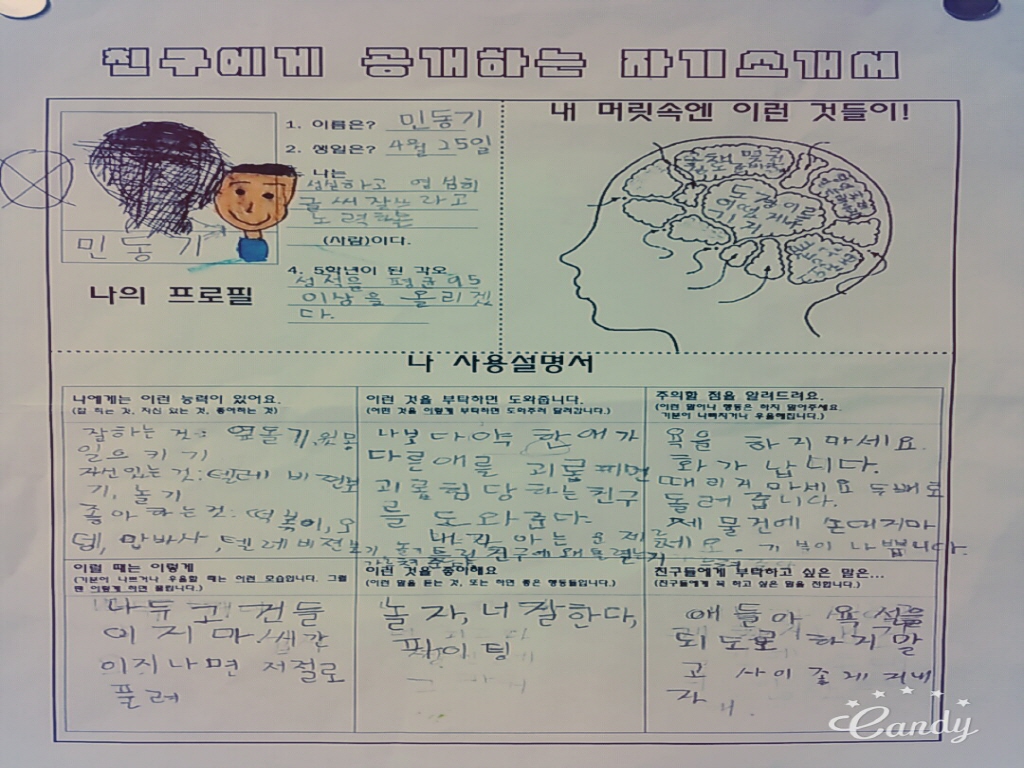 친구에게 공개하는 자기소개서
1. 이름은? 민동기
2. 생일은? 4월 25일
나는
성실하고 열심히
글씨 잘쓰라고
노력하는
(사람)이다.
4. 5학년이 된 각오
성적을 평균 95
이상을 올리겠
다.
민동기
나의 프로필
내 머릿속엔 이런 것들이!
나 사용설명서
나에게는 이런 능력이 있어요.
(잘 하는 것, 자신 있는 것, 좋아하는 것)
잘하는 것: 옆돌기, 윗몸
일으키기
자신있는 것: 텔레비전보
기, 놀기
좋아하는 것: 떡볶이, 오
뎅, 만반사, 텔레비전보기, 놀기
이런 것을 부탁하면 도와줍니다.
(이런 것을 이렇게 부탁하면 도와주러 달려갑니다.)
나보다 약한 애가
다른애를 괴롭피면
괴롭힘 당하는 친구
를 도와준다.
내가 아는 문제를
주의할 점을 알려드려요.
(이런 말이나 행동은 하지 말아주세요.
기분이 나빠지거나 우울해집니다.)
욕을 하지마세요.
화가 납니다.
때리지 마세요 두배로
돌려줍니다.
제 물건에 손대지마
세요. 기분이 나쁩니다.
이럴 때는 이렇게
(기분이 나쁘거나 우울할 때는 이런 모습입니다. 그럴
땐 이렇게 하면 풀립니다.)
나두고 건들
이지마. 시간
이지나면 저절로
풀려
이런 것을 좋아해요
(이런 말을 듣는 것, 또는 하면 좋은 행동들입니다.)
놀자, 너 잘한다,
파이팅
친구들에게 부탁하고 싶은 말은...
(친구들에게 꼭 하고 싶은 말을 전합니다.)
애들아 욕설을
되도로 하지말
고 사이좋게 지내
자.
Candy